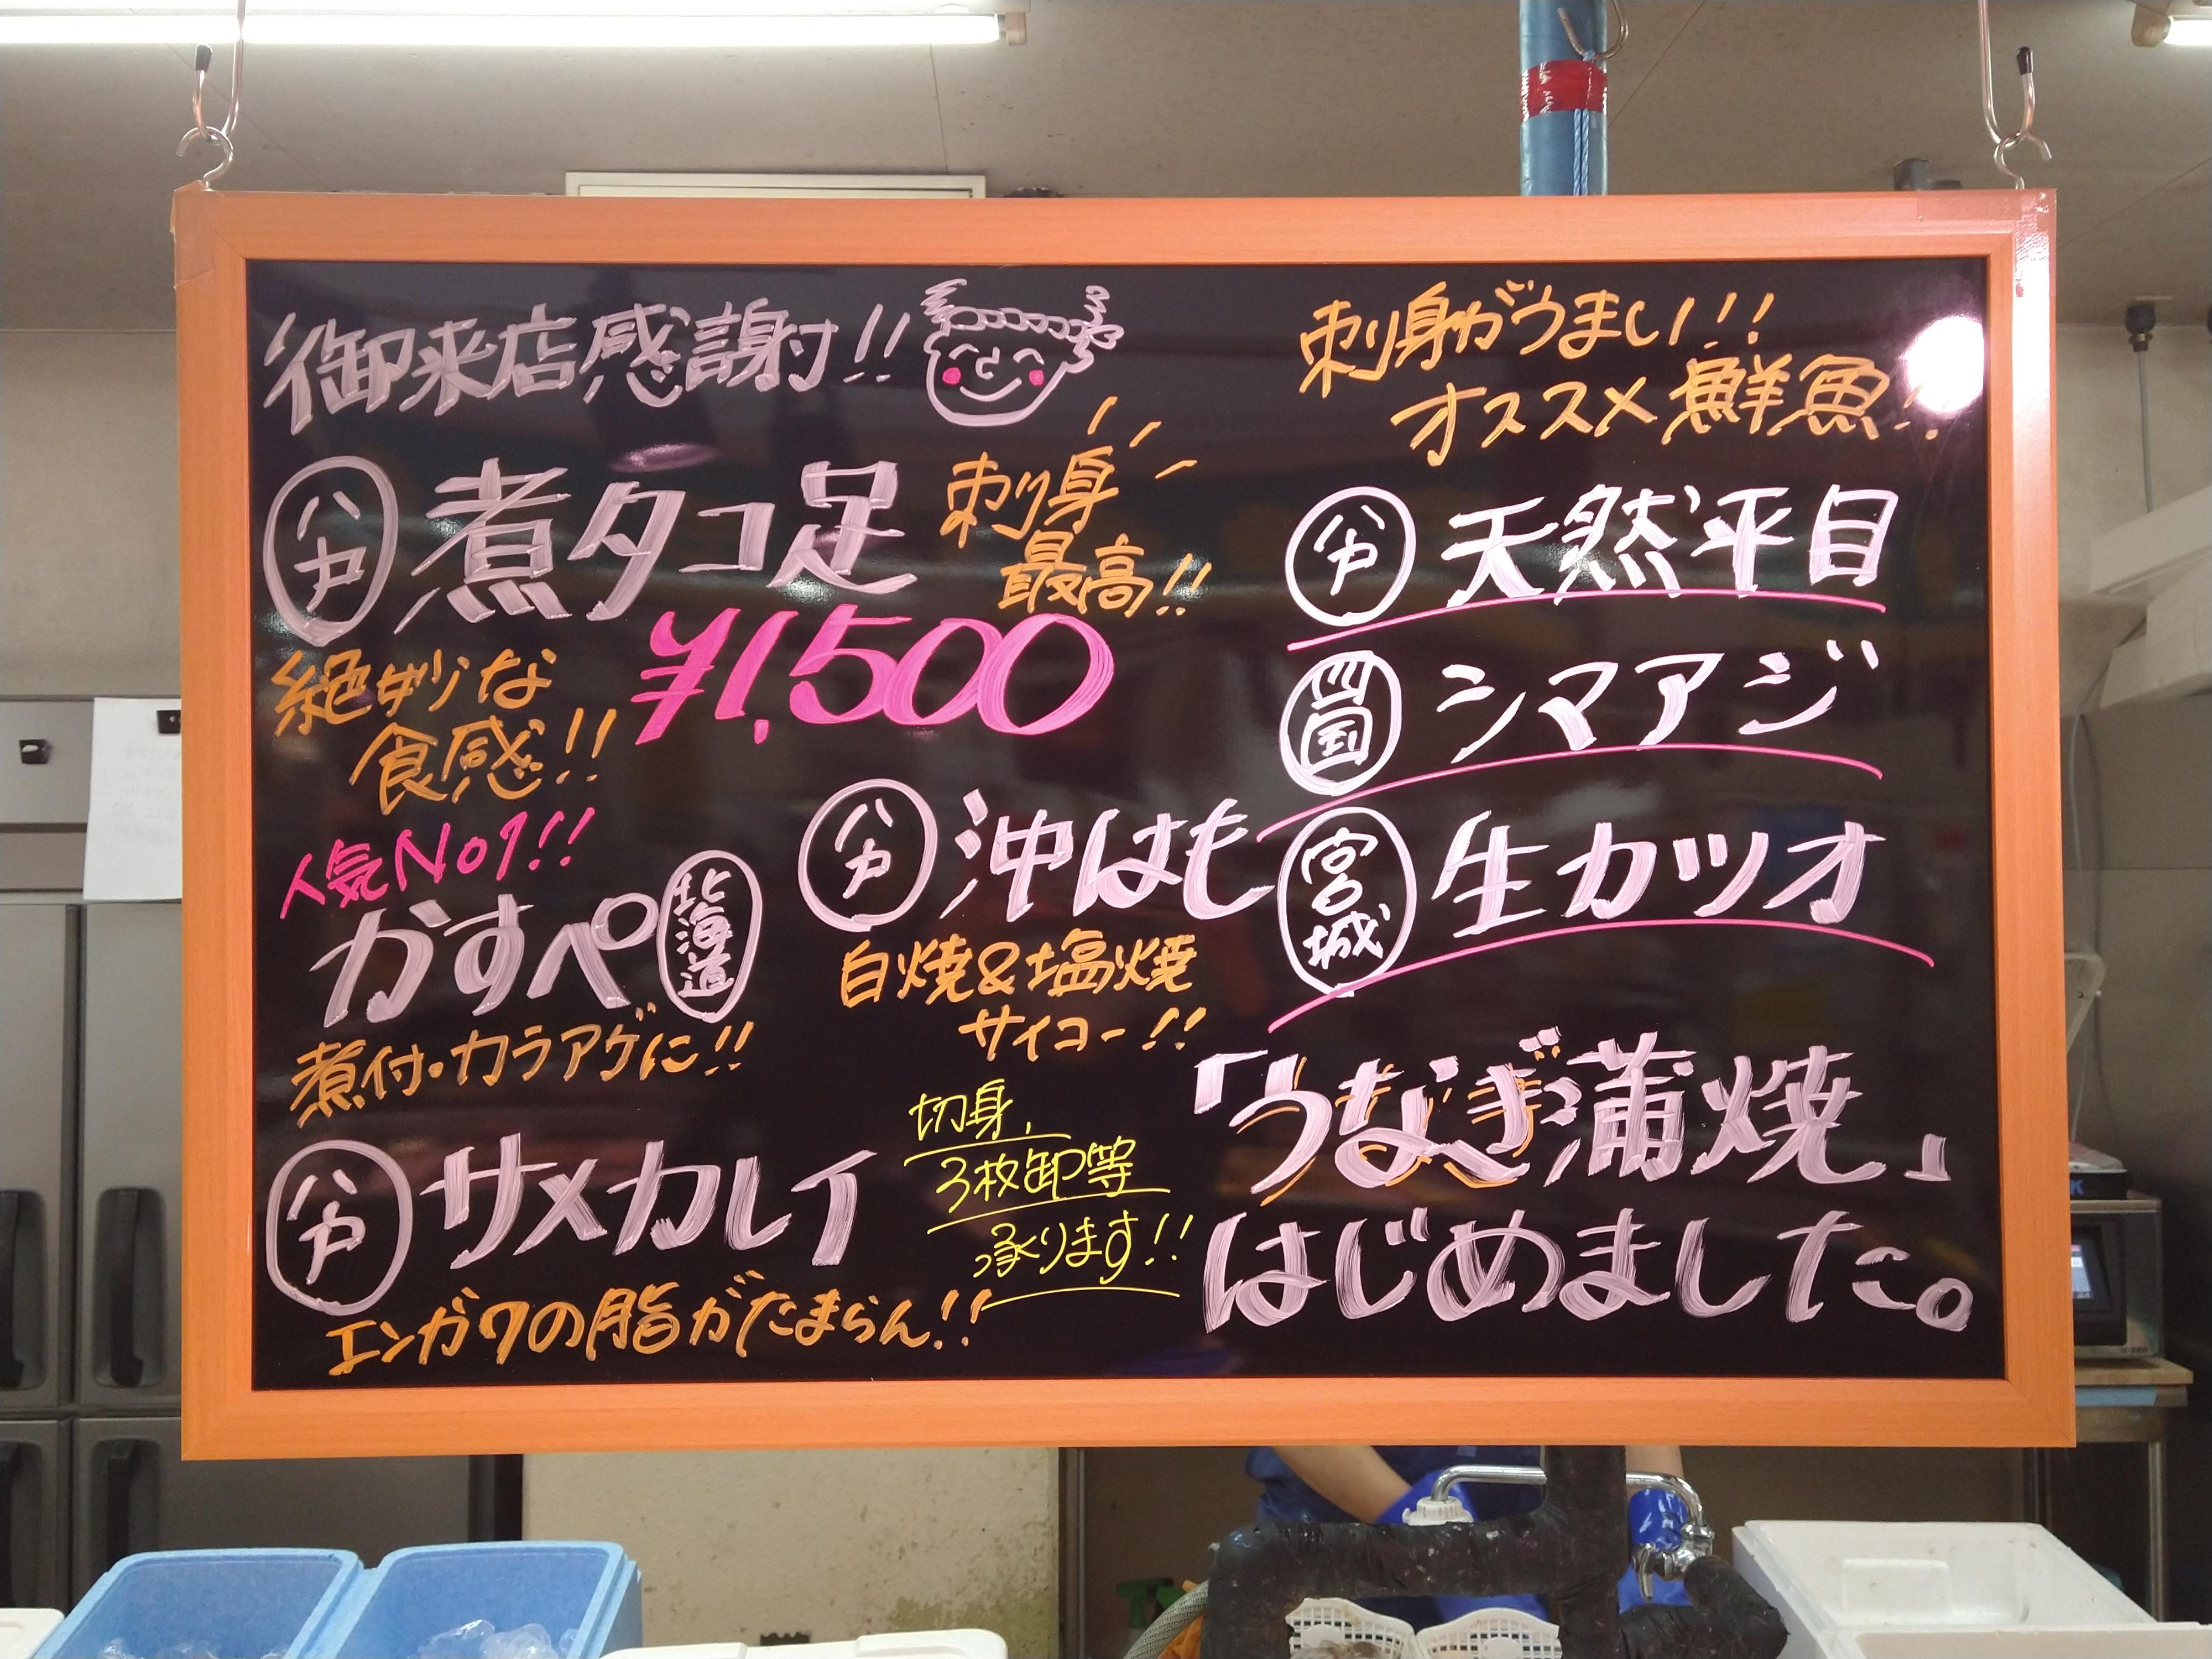 御来店感謝!!
八戸 煮タコ足
刺身
最高!!
¥1,500
絶妙な
食感!!
人気No1!!
かすべ 北海道
煮付・カラアゲに!!
八戸 沖はも
白焼&塩焼
サイコー!!
八戸 サメカレイ
エンガワの脂がたまらん!!
切身、
3枚卸等
承ります!!
刺身がうまい!!
オススメ鮮魚!!
八戸 天然平目
四国 シマアジ
宮城 生カツオ
「うなぎ蒲焼」
はじめました。